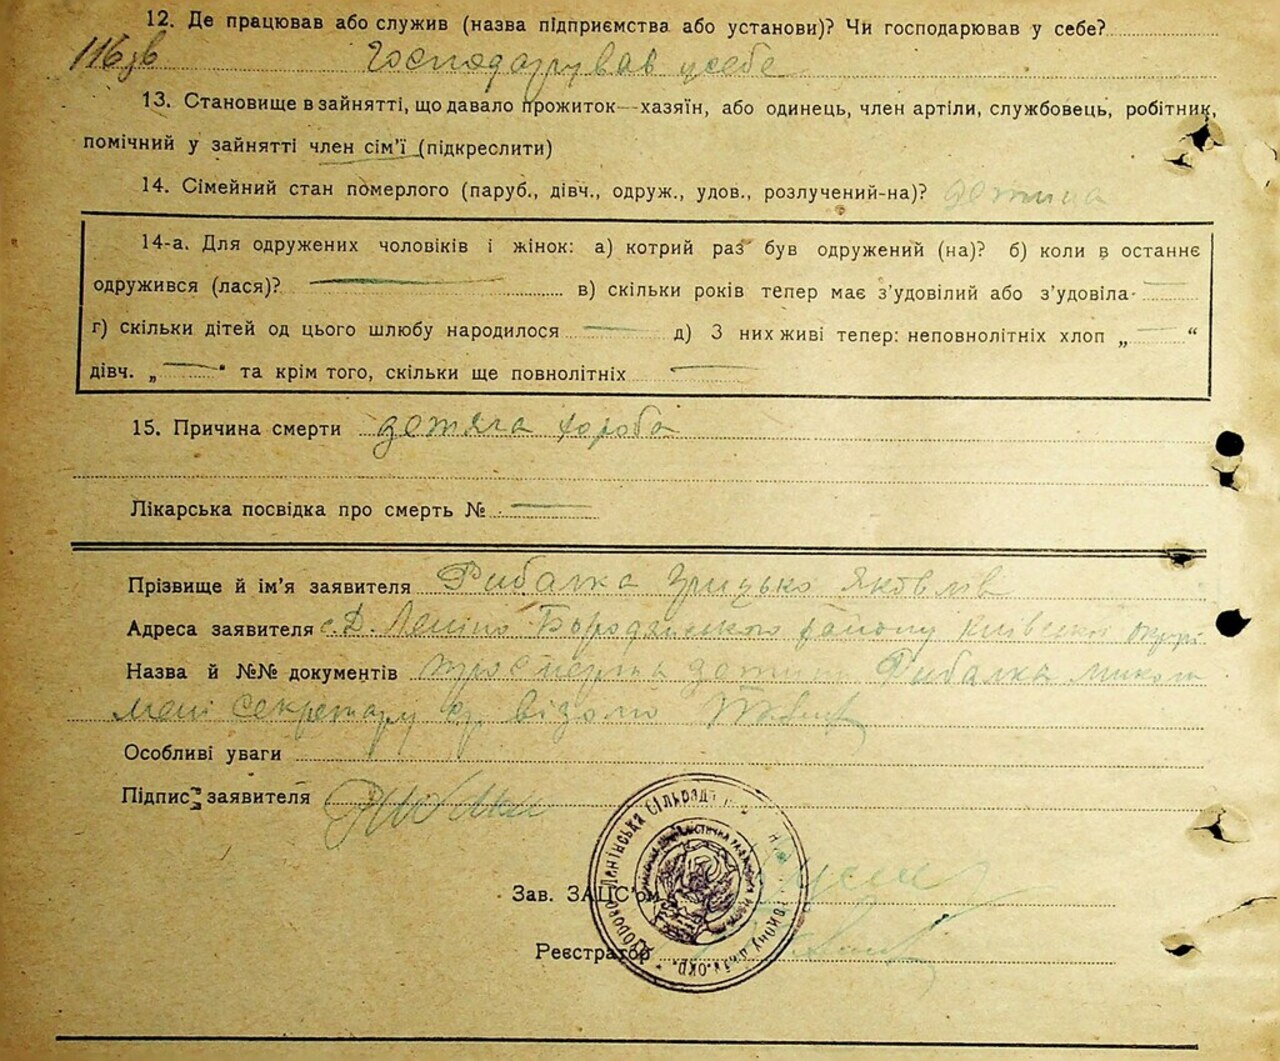 12. Де працював або служив (назва підприємства або установи)? Чи господарював у себе?
116зв Господарував у себе
13. Становище в зайнятті, що давало прожиток—хазяїн, або одинець, член артіли, службовець, робітник,
помічний у зайнятті член сім'ї (підкреслити)
14. Сімейний стан померлого (паруб., дівч., одруж., удов., розлучений-на)? детина
14-а. Для одружених чоловіків і жінок: а) котрий раз був одружений (на)? б) коли в останнє
одружився (лася)? — в) скільки років тепер має з'удовілий або з'удовіла- —
г) скільки дітей од цього шлюбу народилося — д) З них живі тепер: неповнолітніх хлоп „ — “
дівч. „ — “ та крім того, скільки ще повнолітніх —
15. Причина смерти детяча хороба
Лікарська посвідка про смерть № —
Прізвище й ім'я заявителя Рибалка Грицько Яковлів
Адреса заявителя с. Д. Леніно Бородянського району Київської округи
Назва й №№ документів про смерть детини Рибалка
мені секретару відомо
Особливі уваги
Підпис заявителя Рибалка
Зав. ЗАЦС'ом
Реєстратор
Ленінська Сільрада